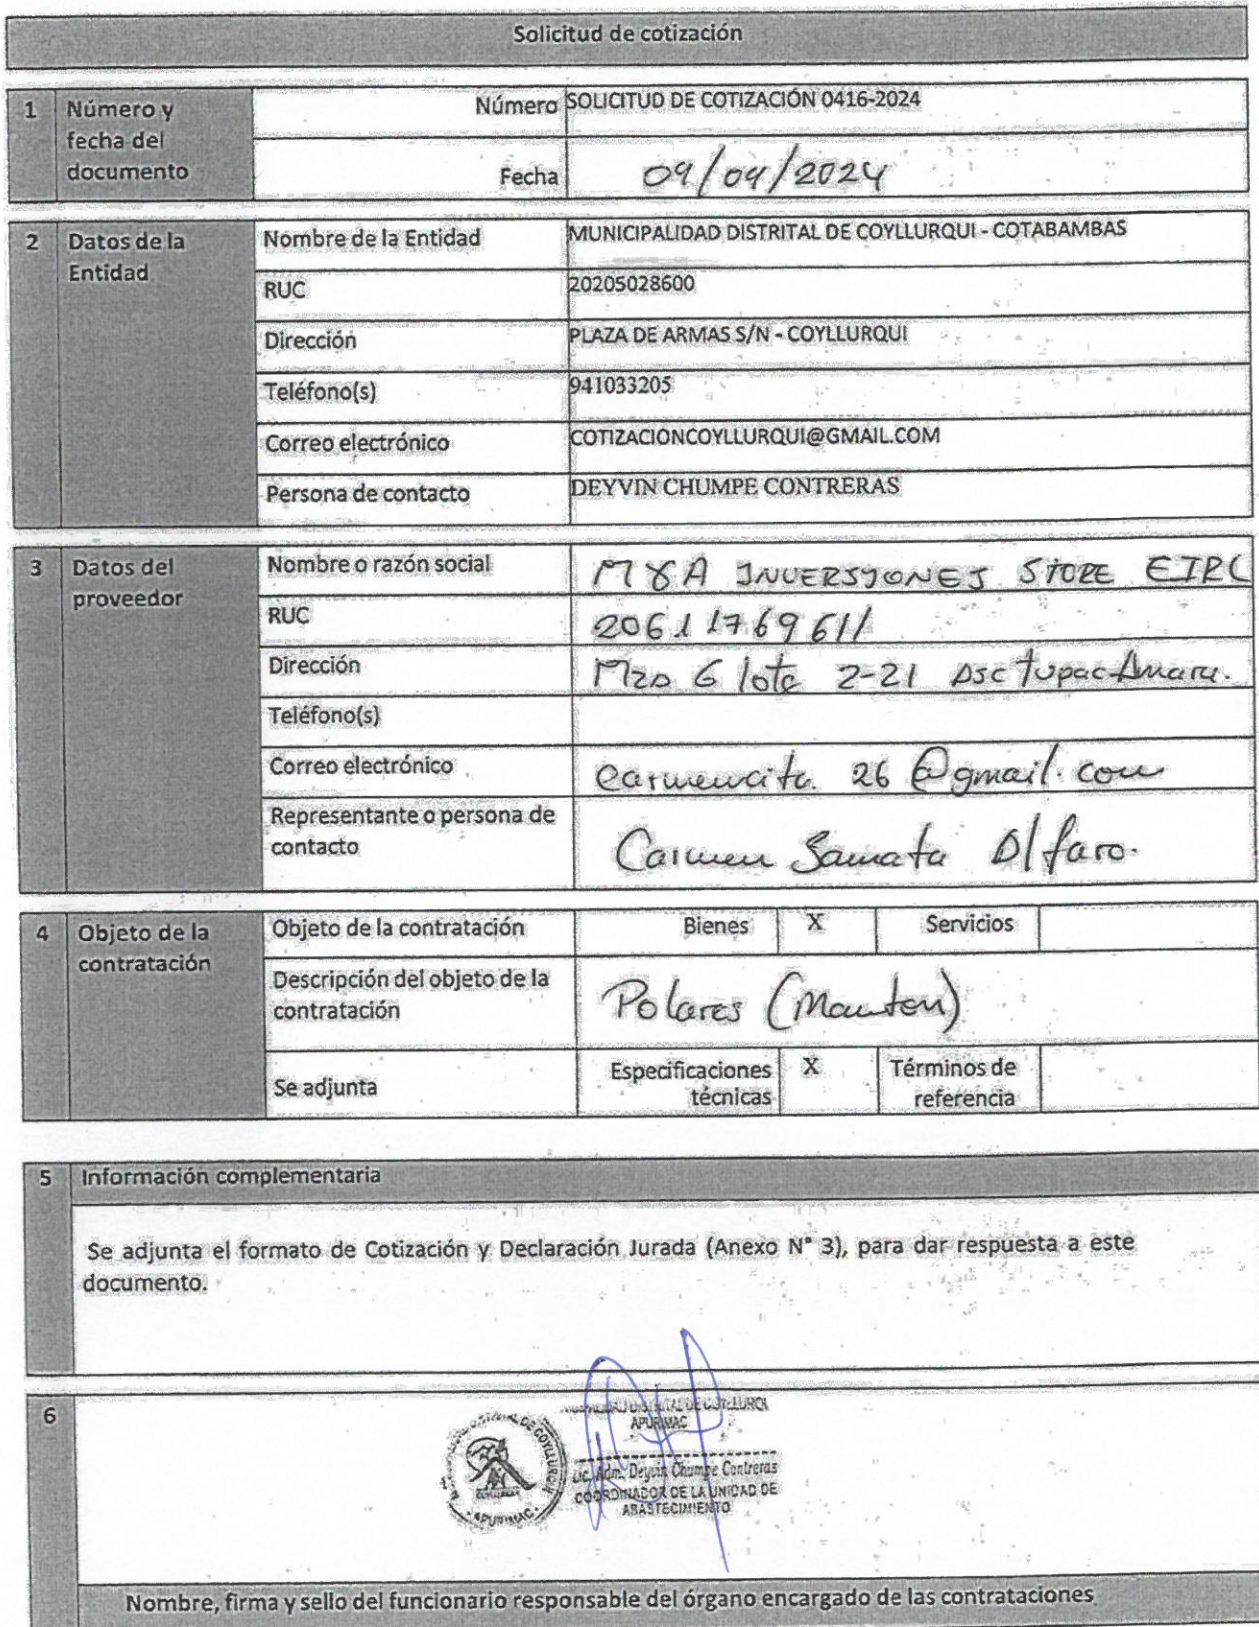 Solicitud de cotización
1 Número y fecha del documento
Número SOLICITUD DE COTIZACIÓN 0416-2024
Fecha 09/04/2024
2 Datos de la Entidad
Nombre de la Entidad MUNICIPALIDAD DISTRITAL DE COYLLURQUI - COTABAMBAS
RUC 20205028600
Dirección PLAZA DE ARMAS S/N - COYLLURQUI
Teléfono(s) 941033205
Correo electrónico COTIZACIONCOYLLURQUI@GMAIL.COM
Persona de contacto DEYVIN CHUMPE CONTRERAS
3 Datos del proveedor
Nombre o razón social M&A INVERSIONES STORE EIRL
RUC 20611769611
Dirección Mza G lote 2-21 Asc Tupac Amaru.
Teléfono(s)
Correo electrónico carmencita. 26 @gmail.com
Representante o persona de contacto Carmen Samata Alfaro.
4 Objeto de la contratación
Objeto de la contratación Bienes X Servicios
Descripción del objeto de la contratación Polares (Manton)
Se adjunta Especificaciones técnicas X Términos de referencia
5 Información complementaria
Se adjunta el formato de Cotización y Declaración Jurada (Anexo N° 3), para dar respuesta a este
documento.
6
DE COYLLURQUI
APURIMAC
Lic. Adm. Deyvin Chumpe Contreras
COORDINADOR DE LA UNIDAD DE
ABASTECIMIENTO
Nombre, firma y sello del funcionario responsable del órgano encargado de las contrataciones